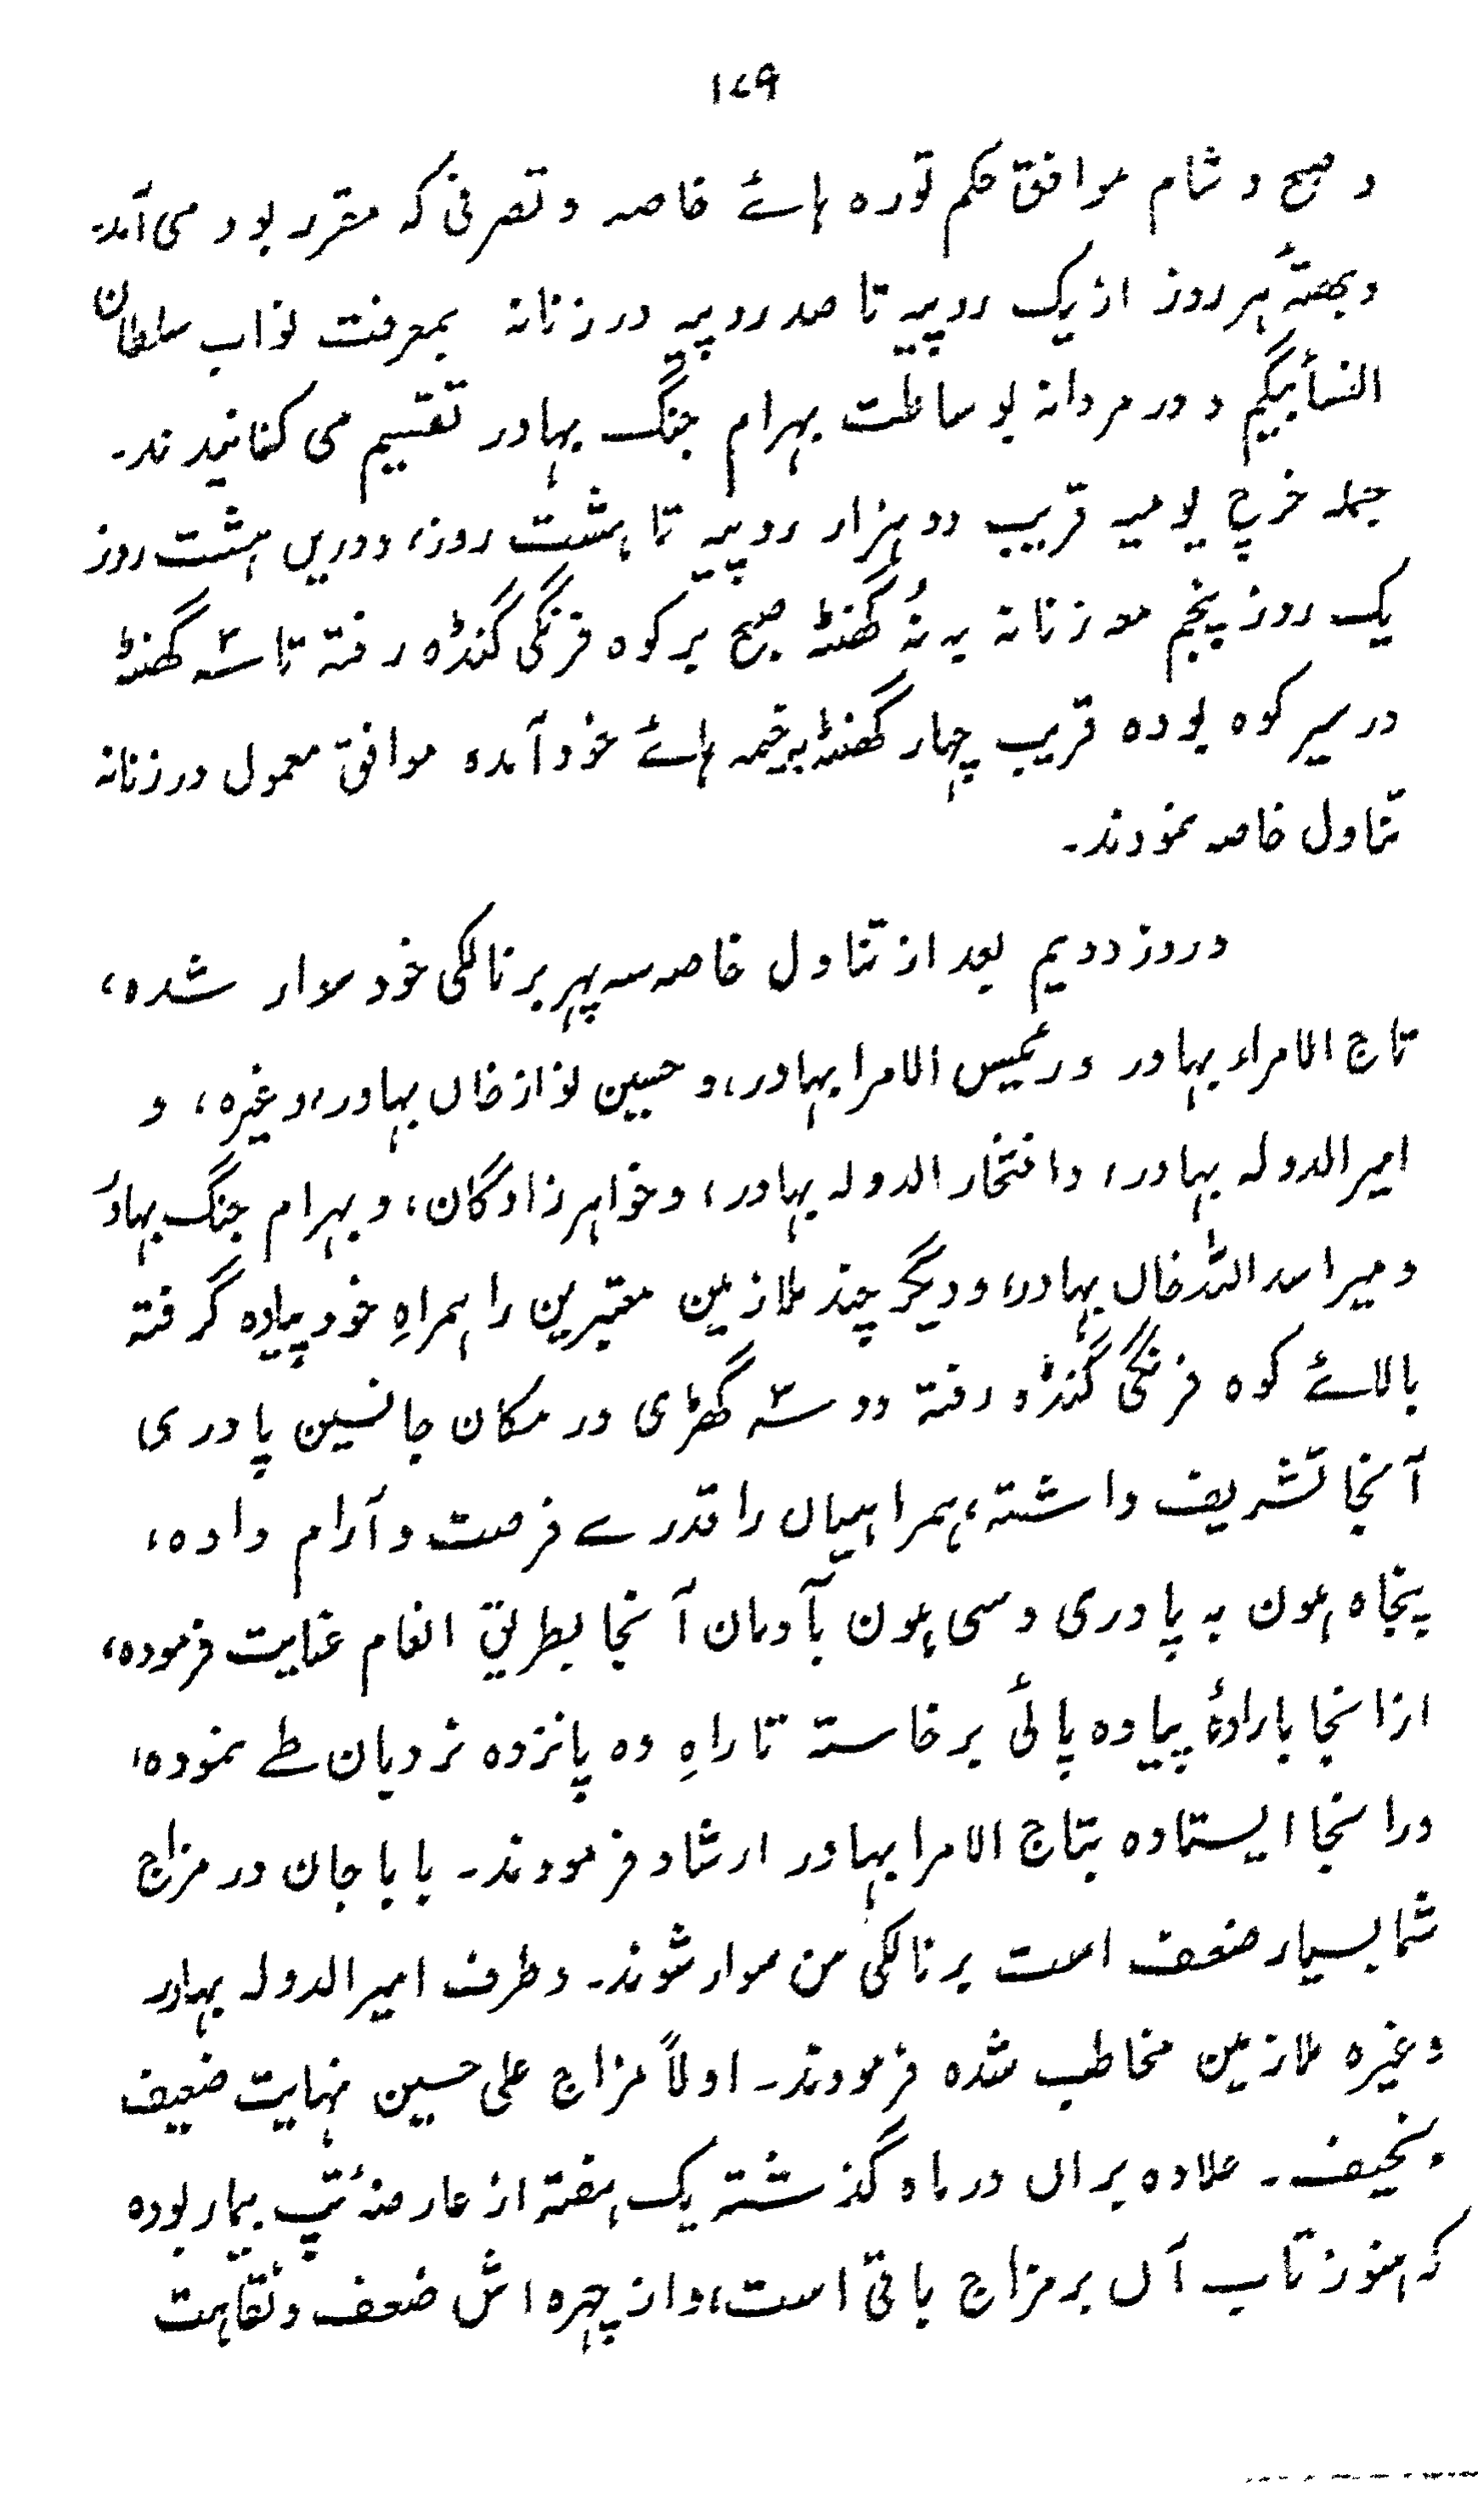 ۱۷۹
و صبح و شام موافق حکم تورہ ہائے خاصہ و تصرفی کہ مقرر بود می آمد۔
وبھتۂ ہر روز از یک روپیہ تا صد روپیہ در زنانہ بمعرفت نواب سلطان
النسأ بیگم و در مردانہ بوساطت بہرام جنگ بہادر تقسیم می کنانیدند۔
جملہ خرچ یومیہ قریب دو ہزار روپیہ تا ہشت روز، و دریں ہشت روز
یک روز پنجم مو زنانہ بہ نُہ گھنٹہ صبح بر کوہ فرنگی گنڈہ رفتہ تا سہ گھنٹہ
در سیر کوہ بودہ قریب چہار گھنٹہ بر خیمہ ہائے خود آمدہ موافق معمول در زنانہ
تناول خاصہ نمودند۔
و روز دویم بعد از تناول خاصہ سہ پہر بر نالکی خود سوار شدہ،
تاج الامراء بہادر و رئیس الامرا بہادر، و حسین نواز خاں بہادر، وغیرہ، و
امیر الدولہ بہادر، و افتخار الدولہ بہادر، و خواہر زادگان، و بہرام جنگ بہادر
و میر اسد اللہ خاں بہادر، و دیگر چند ملازمین معتبرین را ہمراہِ خود پیادہ گرفتہ
بالائے کوہ فرنگی گنڈہ رفتہ دو سہ گھڑی در مکان جانسین پادری
آنجا تشریف داشتہ، ہمراہیاں را قدرے فرصت و آرام دادہ،
پنجاہ ہون بہ پادری و سی ہون بآدمان آنجا بطریق انعام عنایت فرمودہ،
ازانجا بارادۂ پیادہ پائی برخاستہ تا راہِ دہ پانزدہ نردبان طے نمودہ،
درانجا ایستادہ بتاج الامرا بہادر ارشاد فرمودند۔ بابا جان در مزاج
شما بسیار ضعف است بر نالکی من سوار شوند۔ و طرف امیر الدولہ بہادر
وغیرہ ملازمین مخاطب شدہ فرمودند۔ اولاً مزاج علی حسین نہایت ضعیف
و نحیف۔ علاوہ براں در ماہ گذشتہ یک ہفتہ از عارضۂ تپ بیمار بودہ
کہ ہنوز تاب آں بر مزاج باقی است، و از چہرہ اش ضعف و نقاہت